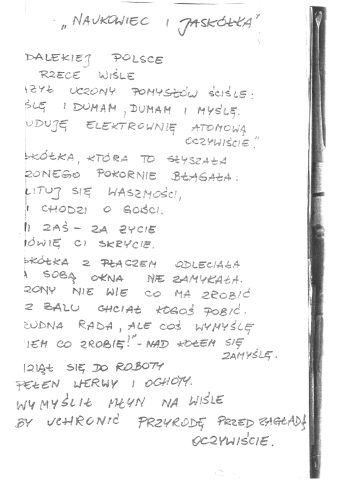 „NAUKOWIEC I JASKÓŁKA"
DALEKIEJ POLSCE
RZECE WIŚLE
ŻYŁ UCZONY POMYSŁÓW ŚCIŚLE:
ŚLĘ I DUMAM, DUMAM I MYŚLĘ.
UDUJĘ ELEKTROWNIĘ ATOMOWĄ
OCZYWIŚCIE."
SKÓŁKA, KTÓRA TO SŁYSZAŁA
ZONEGO POKORNIE BŁAGAŁA:
LITUJ SIĘ WASZMOŚCI,
I CHODZI O GOŚCI.
I ZAŚ - ZA ŻYCIE
MÓWIĘ CI SKRYCIE.
SKÓŁKA Z PŁACZEM ODLECIAŁA
A SOBĄ OKNA NIE ZAMYKAŁA.
ZONY NIE WIE CO MA ZROBIĆ
Z ŻALU CHCIAŁ KOGOŚ POBIĆ.
RUDNA RADA, ALE COŚ WYMYŚLĘ
IEM CO ZROBIĘ!" - NAD KOŁEM SIĘ
ZAMYŚLĘ.
WZIĄŁ SIĘ DO ROBOTY
PEŁEN WERWY I OCHOTY.
WYMYŚLIŁ MŁYN NA WIŚLE
BY UCHRONIĆ PRZYRODĘ PRZED ZAGŁADĄ
OCZYWIŚCIE.